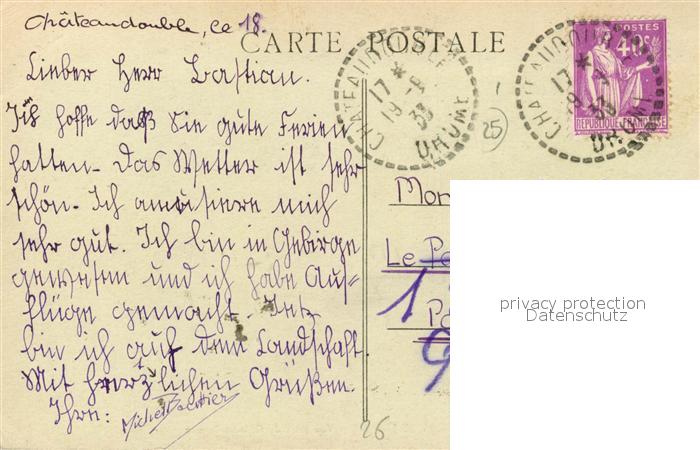 Châteaudouble, le 18.
CARTE POSTALE
Lieber Herr Bastian.
Ich hoffe daß Sie gute Ferien
hatten. Das Wetter ist sehr
schön. Ich amüsiere mich
sehr gut. Ich bin in Gebirge
gewesen und ich habe Aus=
flüge gemacht. Jetz
bin ich auf dem Landschaft.
Mit herzlichen Grüßen.
Ihre:
CHATEAUDOUBLE
17 *
19 -8
33
DROME
CHATEAUDOUBLE
17 *
19 -8
33
DROME
POSTES
40c
REPUBLIQUE FRANÇAISE
25
Mon
Le Pe
1
Pa
9
26
privacy protection
Datenschutz